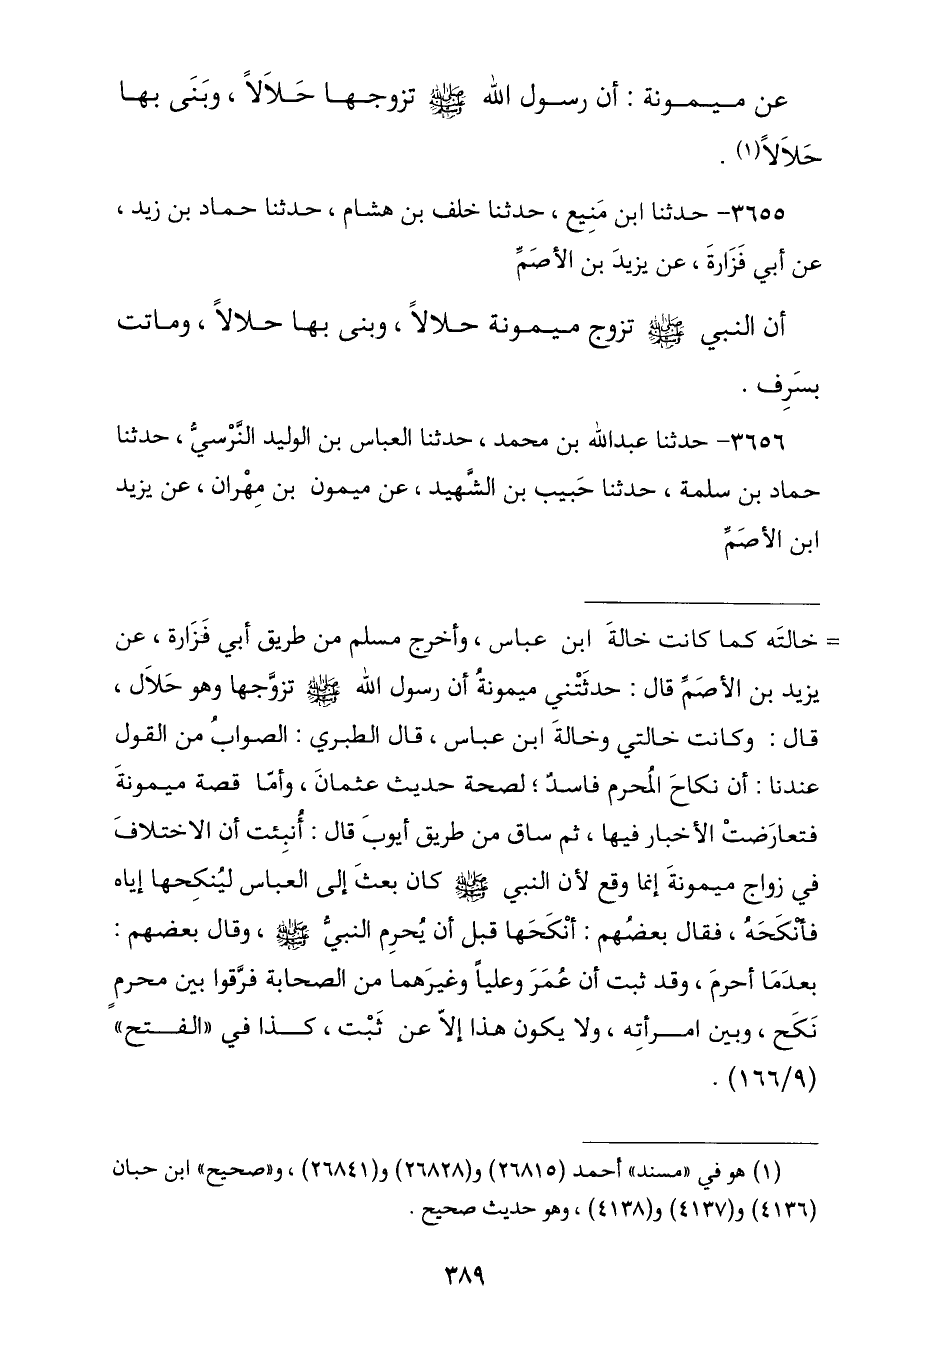 عن ميمونة : أن رسول الله ﷺ تزوجها حَلاَلاً ، وبَنَى بها
حَلاَلاً(١) .
٣٦٥٥- حدثنا ابن مَنِيع ، حدثنا خلف بن هشام ، حدثنا حماد بن زيد ،
عن أبي فَزَارةَ ، عن يزيدَ بن الأصَمِّ
أن النبي ﷺ تزوج ميمونة حلالاً ، وبنى بها حلالاً ، وماتت
بسَرِف .
٣٦٥٦- حدثنا عبدالله بن محمد ، حدثنا العباس بن الوليد النَّرْسيُّ ، حدثنا
حماد بن سلمة ، حدثنا حَبيب بن الشَّهيد ، عن ميمون بن مِهْران ، عن يزيد
ابن الأصَمِّ
= خالتَه كما كانت خالةَ ابن عباس ، وأخرج مسلم من طريق أبي فَزَارة ، عن
يزيد بن الأصَمِّ قال : حدثَتْني ميمونةُ أن رسول الله ﷺ تزوَّجها وهو حَلاَل ،
قال : وكانت خالتي وخالةَ ابن عباس ، قال الطبري : الصوابُ من القول
عندنا : أن نكاحَ المُحرم فاسدٌ ؛ لصحة حديث عثمانَ ، وأمّا قصة ميمونةَ
فتعارَضتْ الأخبار فيها ، ثم ساق من طريق أيوبَ قال : أُنبِئت أن الاختلافَ
في زواج ميمونةَ إنما وقع لأن النبي ﷺ كان بعثَ إلى العباس ليُنكِحها إياه
فأنْكَحَهُ ، فقال بعضُهم : أنْكَحَها قبل أن يُحرِم النبيُّ ﷺ ، وقال بعضهم :
بعدَمَا أحرمَ ، وقد ثبت أن عُمَرَ وعلياً وغيرَهما من الصحابة فرَّقوا بين محرمٍ
نَكَح ، وبين امرأتِه ، ولا يكون هذا إلاّ عن ثَبْت ، كذا في «الفتح»
(١٦٦/٩) .
(١) هو في «مسند» أحمد (٢٦٨١٥) و(٢٦٨٢٨) و(٢٦٨٤١) ، و«صحيح» ابن حبان
(٤١٣٦) و(٤١٣٧) و(٤١٣٨) ، وهو حديث صحيح .
٣٨٩